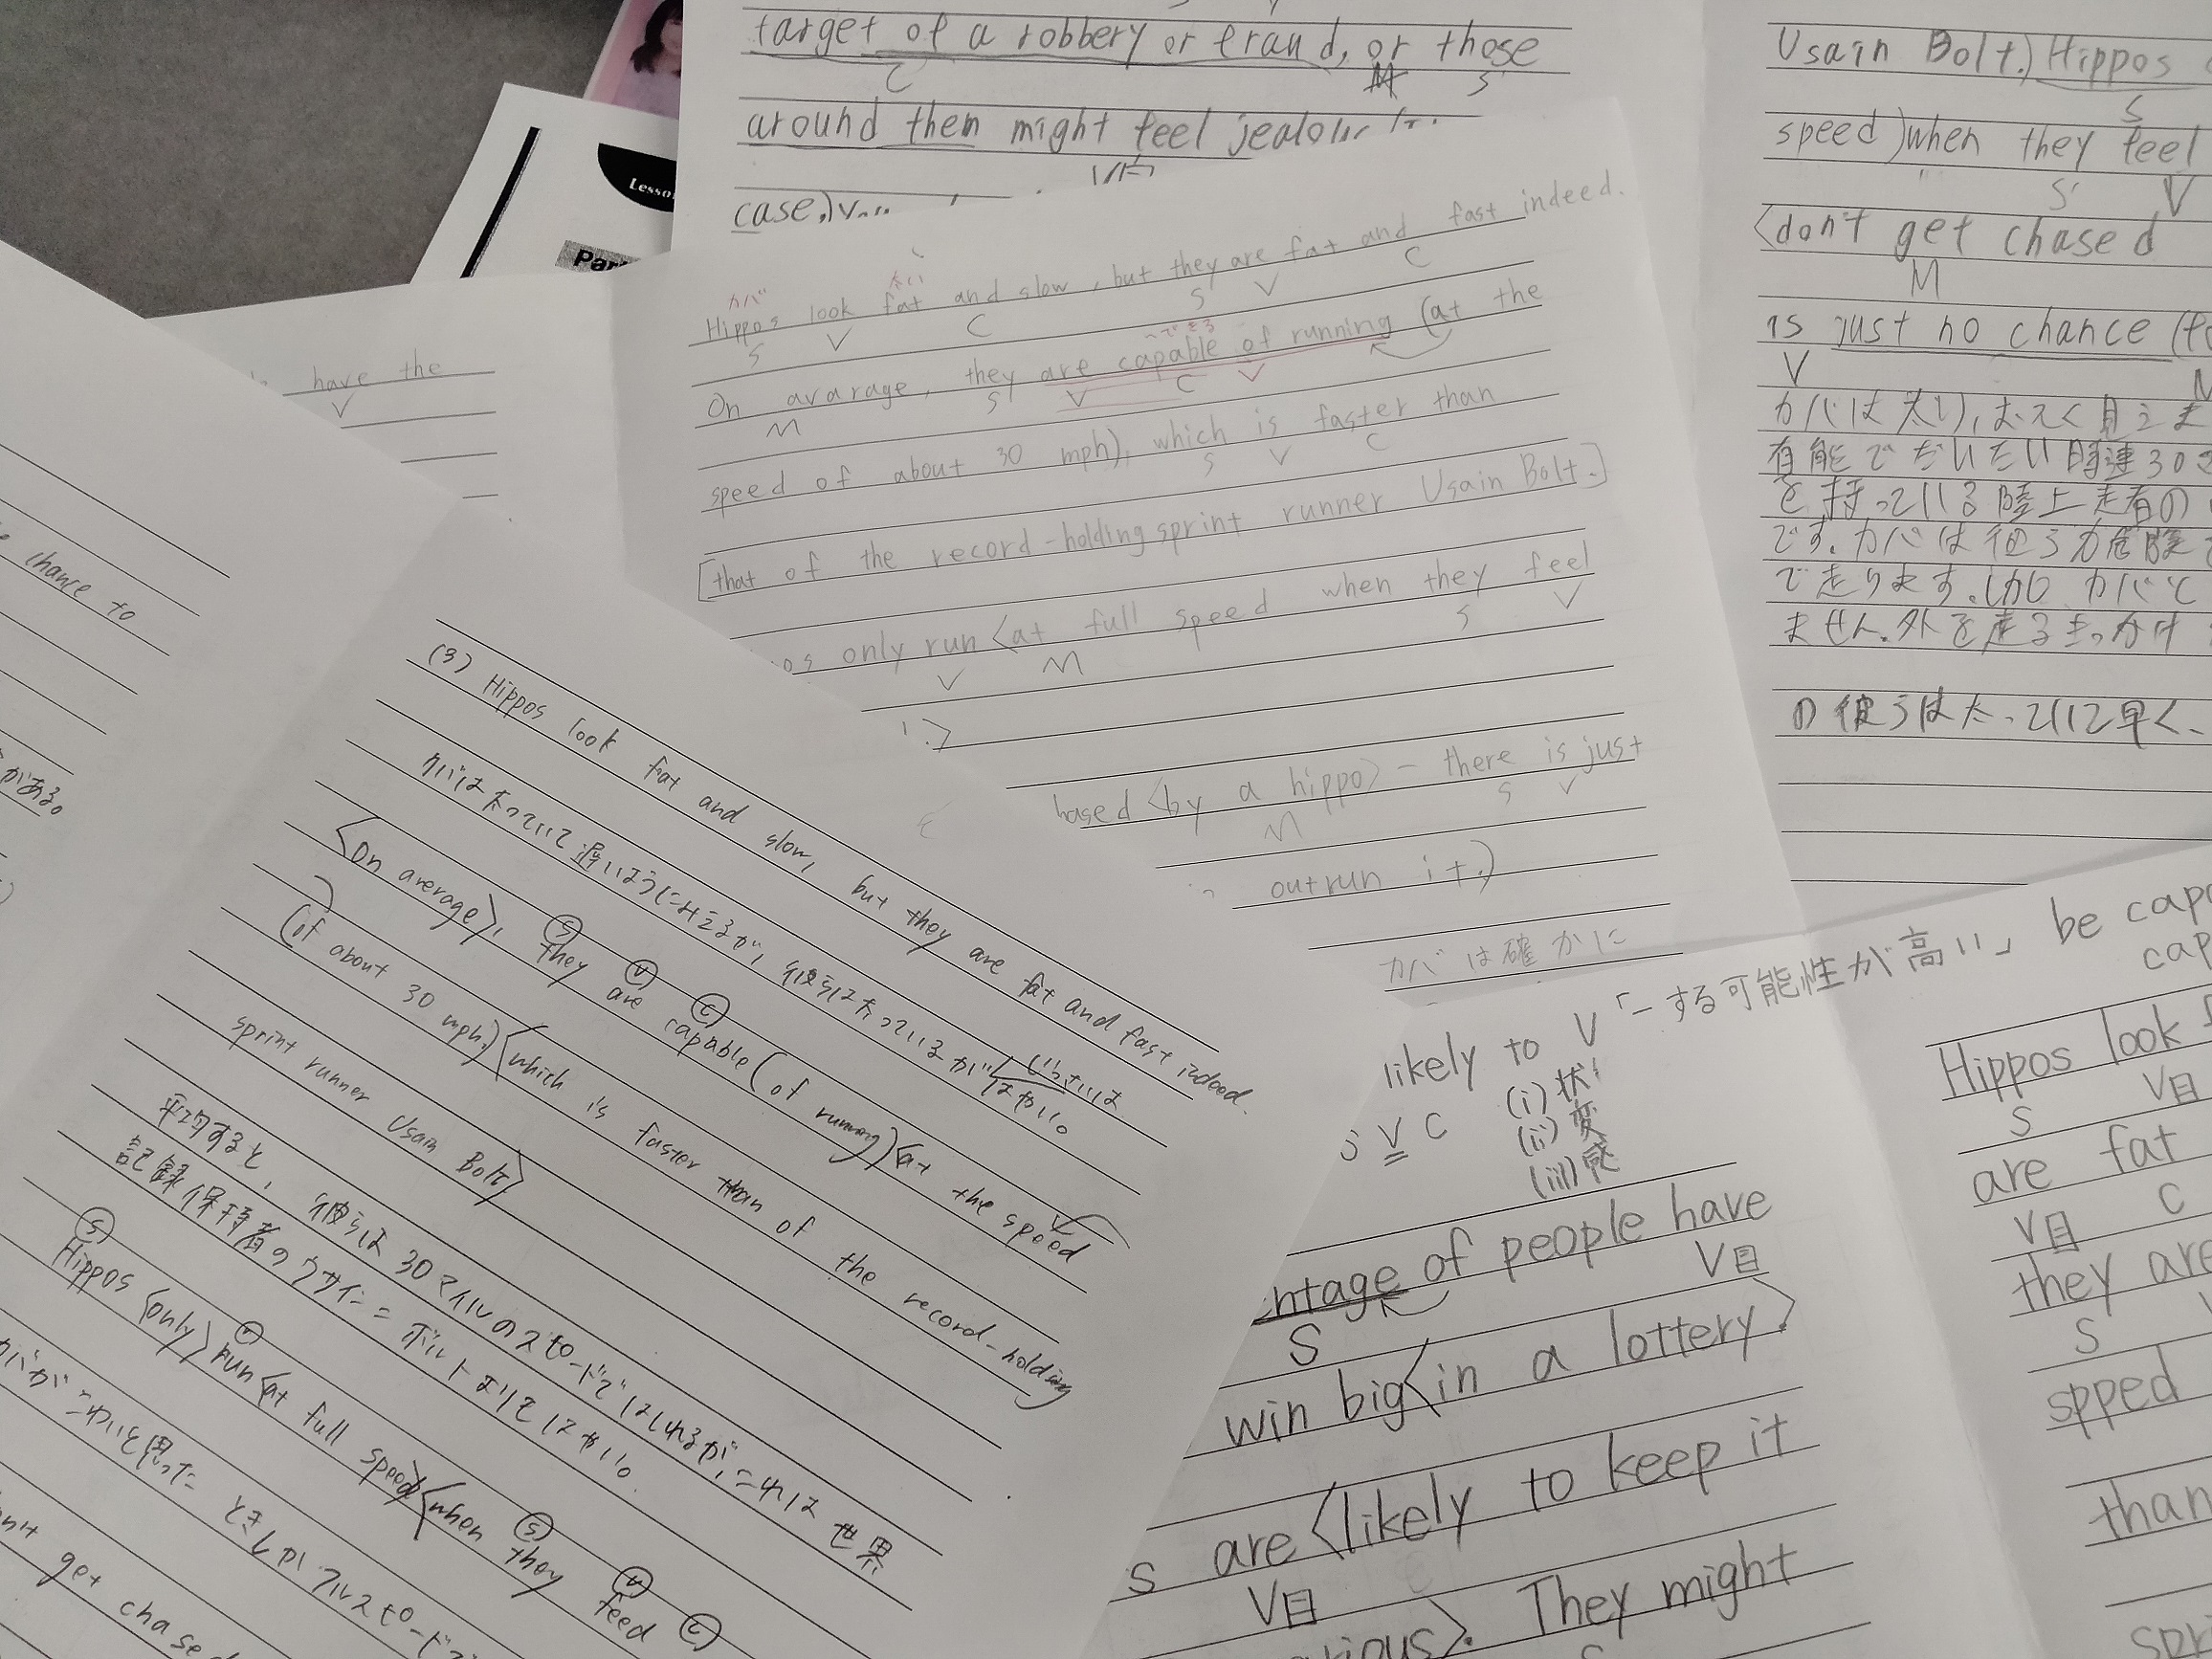 target of a robbery or fraud, or those
C M S'
around them might feel
V目
case,)
Lesso
Par
Usain Bolt.) Hippos
S
speed) when they feel
S' V
〈don't get chased
M
is just no chance
V
カバは太り、おそく見えま
有能でだいたい時速30
を持っている陸上走者の
です。カバは彼ら力危険
で走ります。しかしカバと
ません。外を走るきっかけ
の彼らはたっていて早く、
have the
V
カバ 太い
Hippos look fat and slow, but they are fat and fast indeed.
S V C S V C
〜できる
On avarage, they are capable of running (at the
M S V C V
speed of about 30 mph), which is faster than
S V C
[that of the record-holding sprint runner Usain Bolt.]
os only run 〈at full speed when they feel
V M S V
hased 〈by a hippo〉 - there is just
M S V
outrun it.)
カバは確かに
chance to
がある。
(3) Hippos look fat and slow, but they are fat and fast indeed.
カバは太っていて遅いように見えるが、彼らは太っているが
はやい。
〈On average〉, they are capable (of running) (at the speed
S V C
(of about 30 mph.) 〈which is faster than of the record-holding
sprint runner Usain Bolt〉
平均すると、彼らは30マイルのスピードではしれるが、これは世界
記録保持者のウサイン=ボルトよりもはやい。
S V S V C
Hippos 〈only〉 run 〈at full speed〉 〈when they feed
カバがこわいと思ったときしかフルスピードで
get chased
likely to V 「〜する可能性が高い」 be capa
cap
V C
(i) 状
(ii) 変
(iii) 感
ntage of people have
S V目
win big 〈in a lottery〉
S are 〈likely to keep it
V目
〉. They might
Hippos look
S V目
are fat
V目 C
they are
S
spped
than
spri